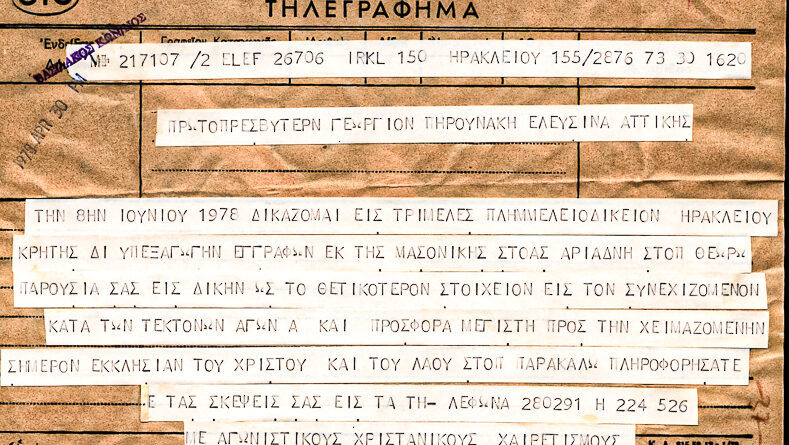 ΤΗΛΕΓΡΑΦΗΜΑ
ΒΑΣΙΛΑΚΟΣ ΚΩΝ/ΝΟΣ
ΜΕ 217107 /2 ELEF 26706 IRKL 150 ΗΡΑΚΛΕΙΟΥ 155/2876 73 30 1620
1978 APR 30 PM
ΠΡωΤΟΠΡΕΣΒΥΤΕΡΝ ΓΕωΡΓΙΟΝ ΠΗΡΟΥΝΑΚΗ ΕΛΕΥΣΙΝΑ ΑΤΤΙΚΗΣ
ΤΗΝ 8ΗΝ ΙΟΥΝΙΟΥ 1978 ΔΙΚΑΖΟΜΑΙ ΕΙΣ ΤΡΙΜΕΛΕΣ ΠΛΗΜΜΕΛΕΙΟΔΙΚΕΙΟΝ ΗΡΑΚΛΕΙΟΥ
ΚΡΗΤΗΣ ΔΙ ΥΠΕΞΑΓωΓΗΝ ΕΓΓΡΑΦωΝ ΕΚ ΤΗΣ ΜΑΣΟΝΙΚΗΣ ΣΤΟΑΣ ΑΡΙΑΔΝΗ ΣΤΟΠ ΘΕωΡω
ΠΑΡΟΥΣΙΑ ΣΑΣ ΕΙΣ ΔΙΚΗΝ ωΣ ΤΟ ΘΕΤΙΚΟΤΕΡΟΝ ΣΤΟΙΧΕΙΟΝ ΕΙΣ ΤΟΝ ΣΥΝΕΧΙΖΟΜΕΝΟΝ
ΚΑΤΑ ΤωΝ ΤΕΚΤΟΝωΝ ΑΓωΝ Α ΚΑΙ ΠΡΟΣΦΟΡΑ ΜΕΓΙΣΤΗ ΠΡΟΣ ΤΗΝ ΧΕΙΜΑΖΟΜΕΝΗΝ
ΣΗΜΕΡΟΝ ΕΚΚΛΗΣΙΑΝ ΤΟΥ ΧΡΙΣΤΟΥ ΚΑΙ ΤΟΥ ΛΑΟΥ ΣΤΟΠ ΠΑΡΑΚΑΛω ΠΛΗΡΟΦΟΡΗΣΑΤΕ
Ε ΤΑΣ ΣΚΕΨΕΙΣ ΣΑΣ ΕΙΣ ΤΑ ΤΗ- ΛΕΦωΝΑ 280291 Η 224 526
ΜΕ ΑΓωΝΙΣΤΙΚΟΥΣ ΧΡΙΣΤΑΝΙΚΟΥΣ ΧΑΙΡΕΤΙΣΜΟΥΣ